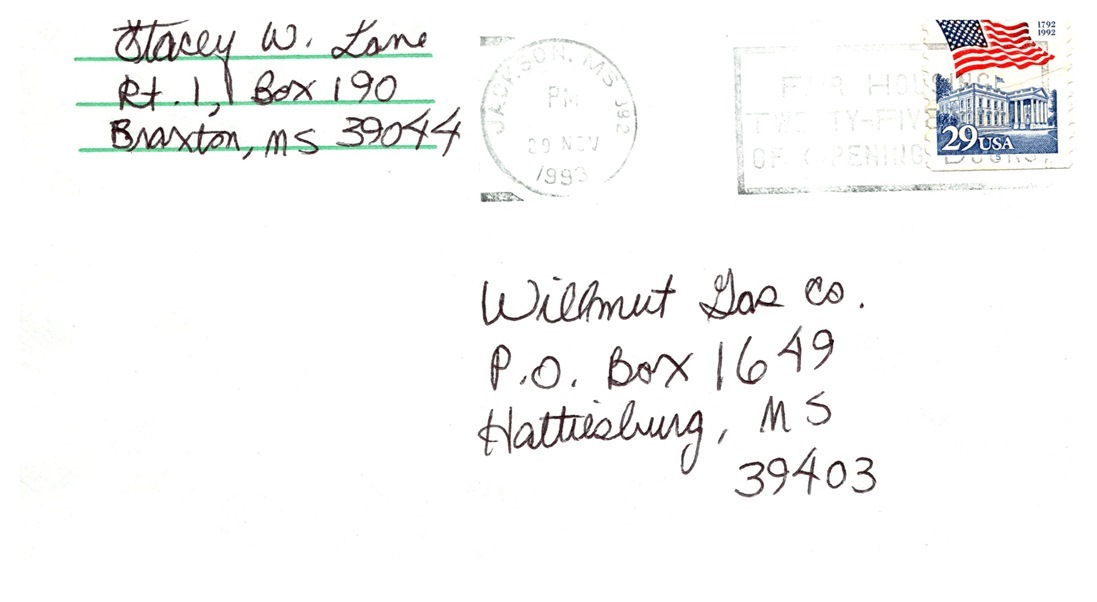 Stacey W. Lane
Rt. 1, Box 190
Braxton, MS 39044
JACKSON, MS 392
PM
29 NOV
1993
FAIR HOUSING:
TWENTY-FIVE
OF OPENING DOORS!
1792
1992
29 USA
Willmut Gas Co.
P.O. Box 1649
Hattiesburg, MS
39403